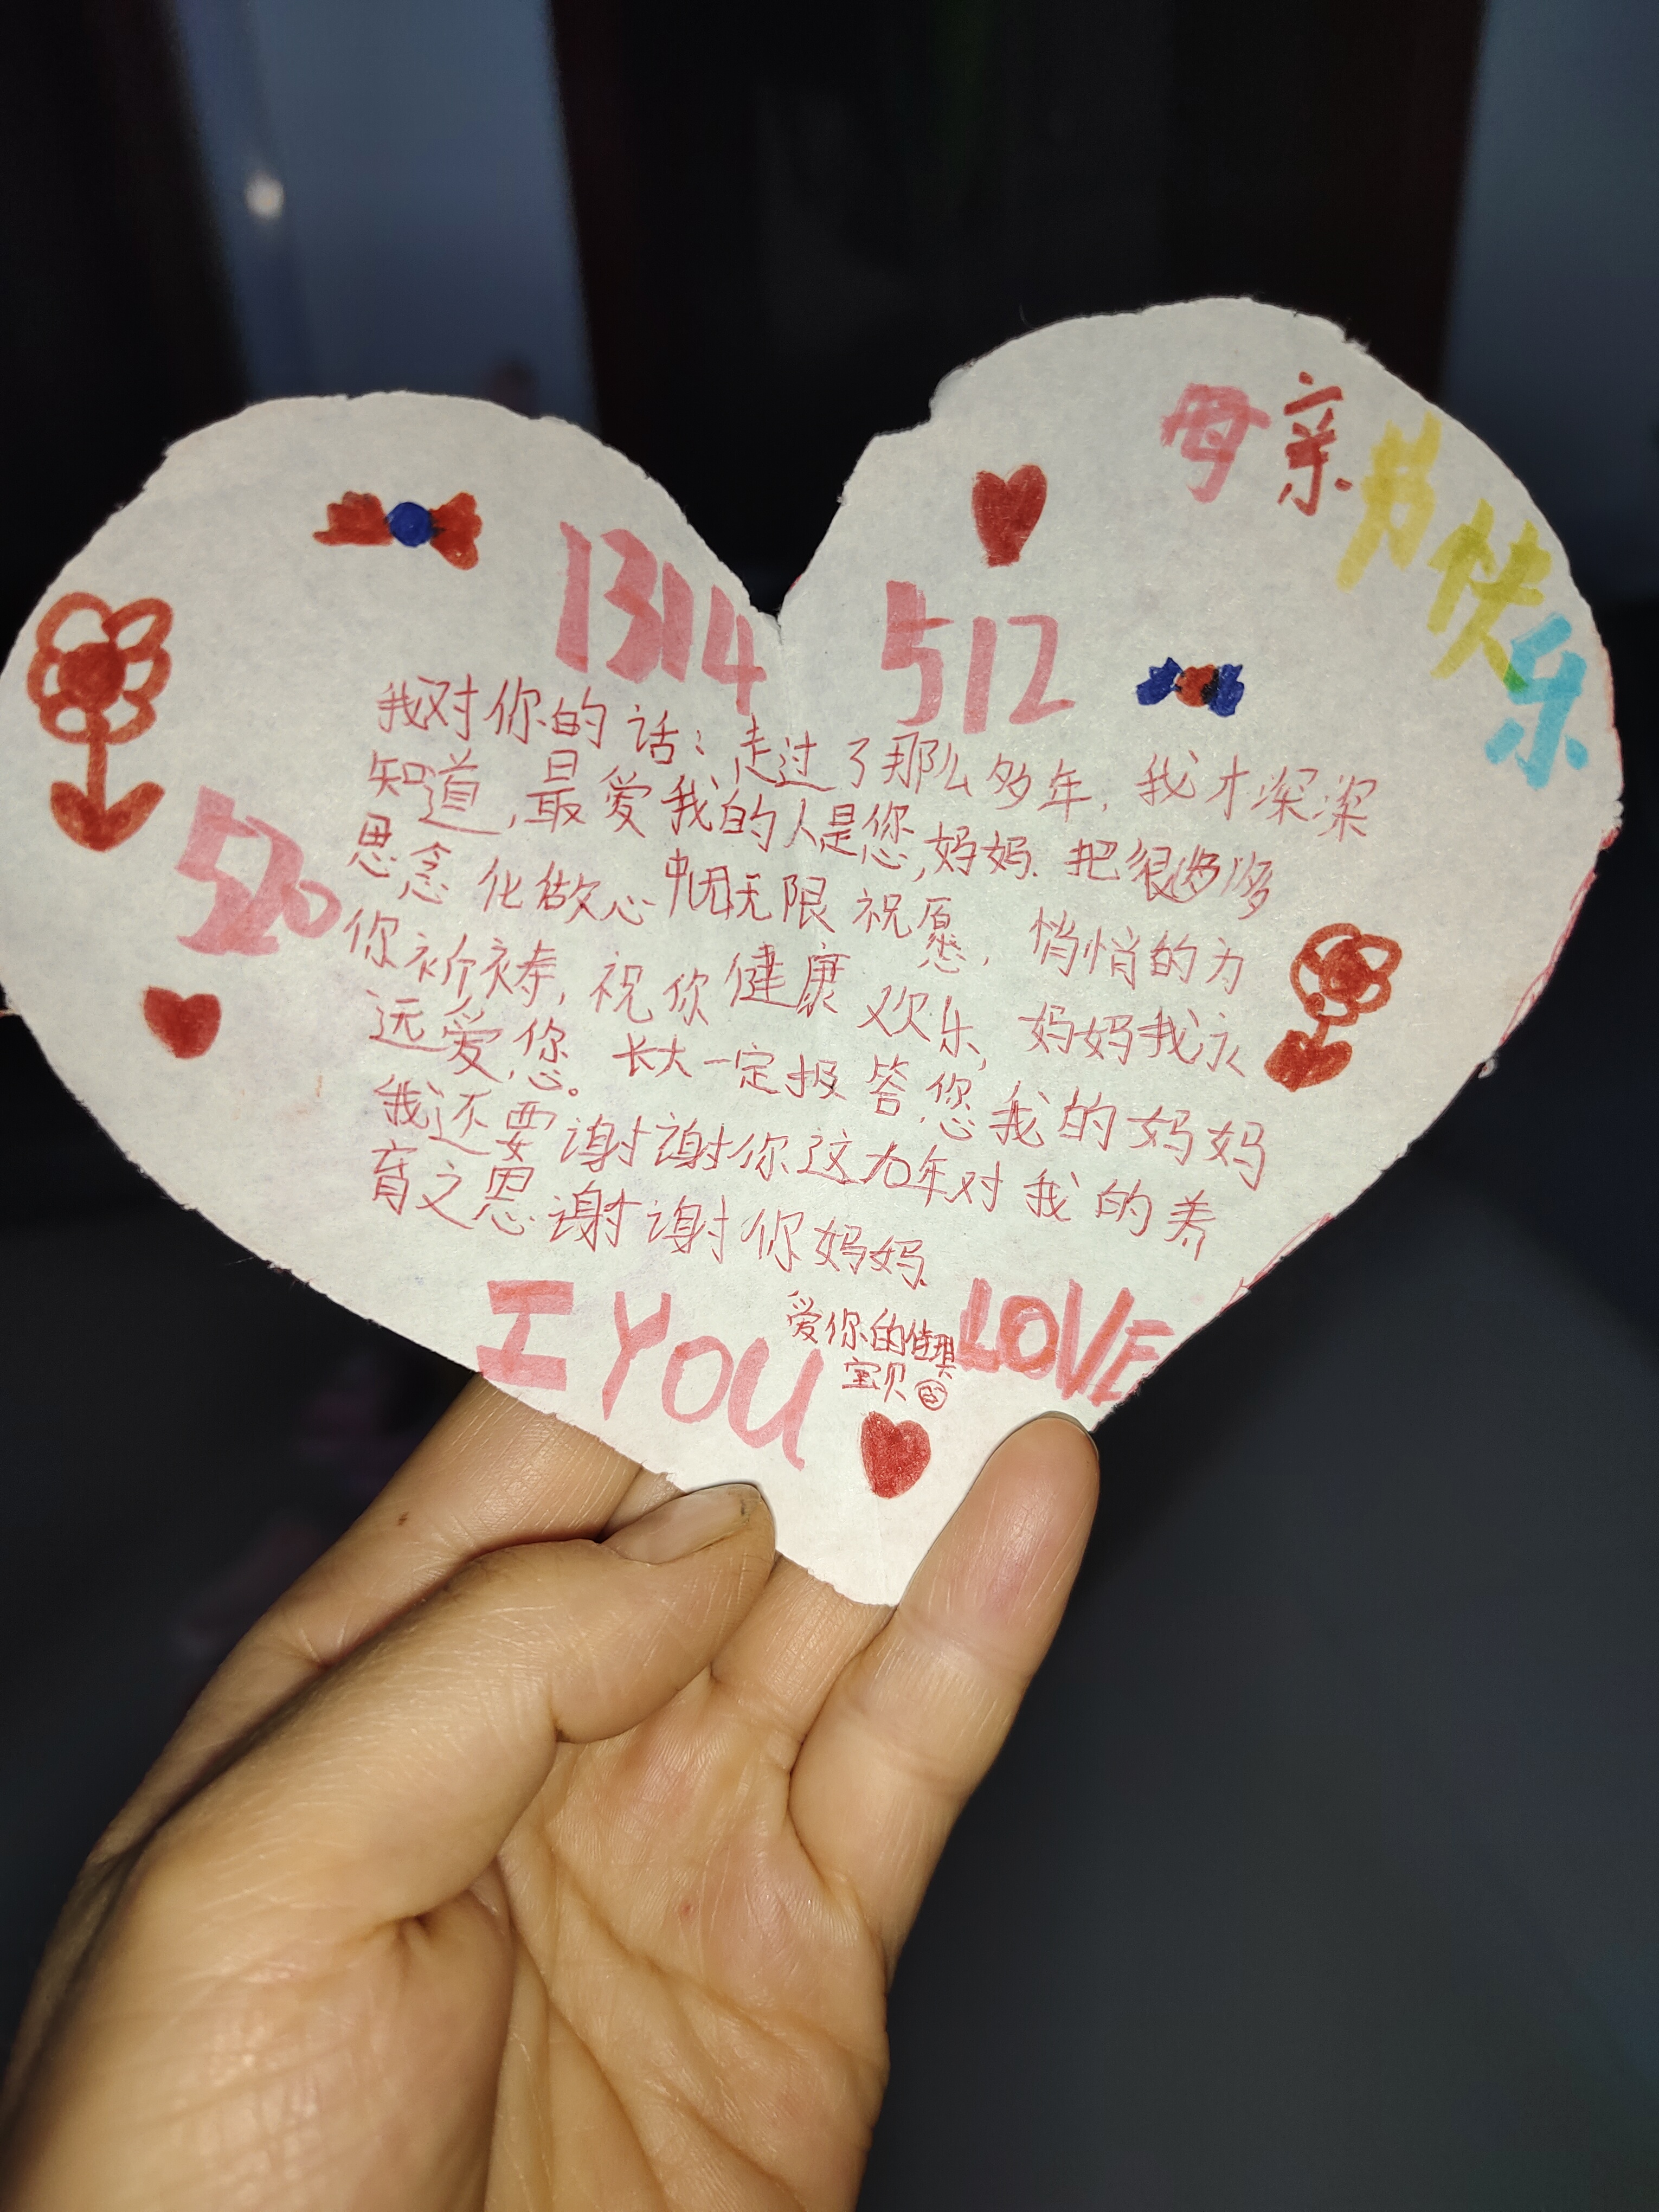 母亲节快乐
1314 512
520
我对你的话：走过了那么多年，我才深深
知道，最爱我的人是您，妈妈．把很多
思念化做心中无限祝愿，悄悄的为
你祈祷，祝你健康欢乐，妈妈我永
远爱您。长大一定报答您我的妈妈
我还要谢谢你这九年对我的养
育之恩谢谢你妈妈．
I YOU LOVE
爱你的佳琪
宝贝